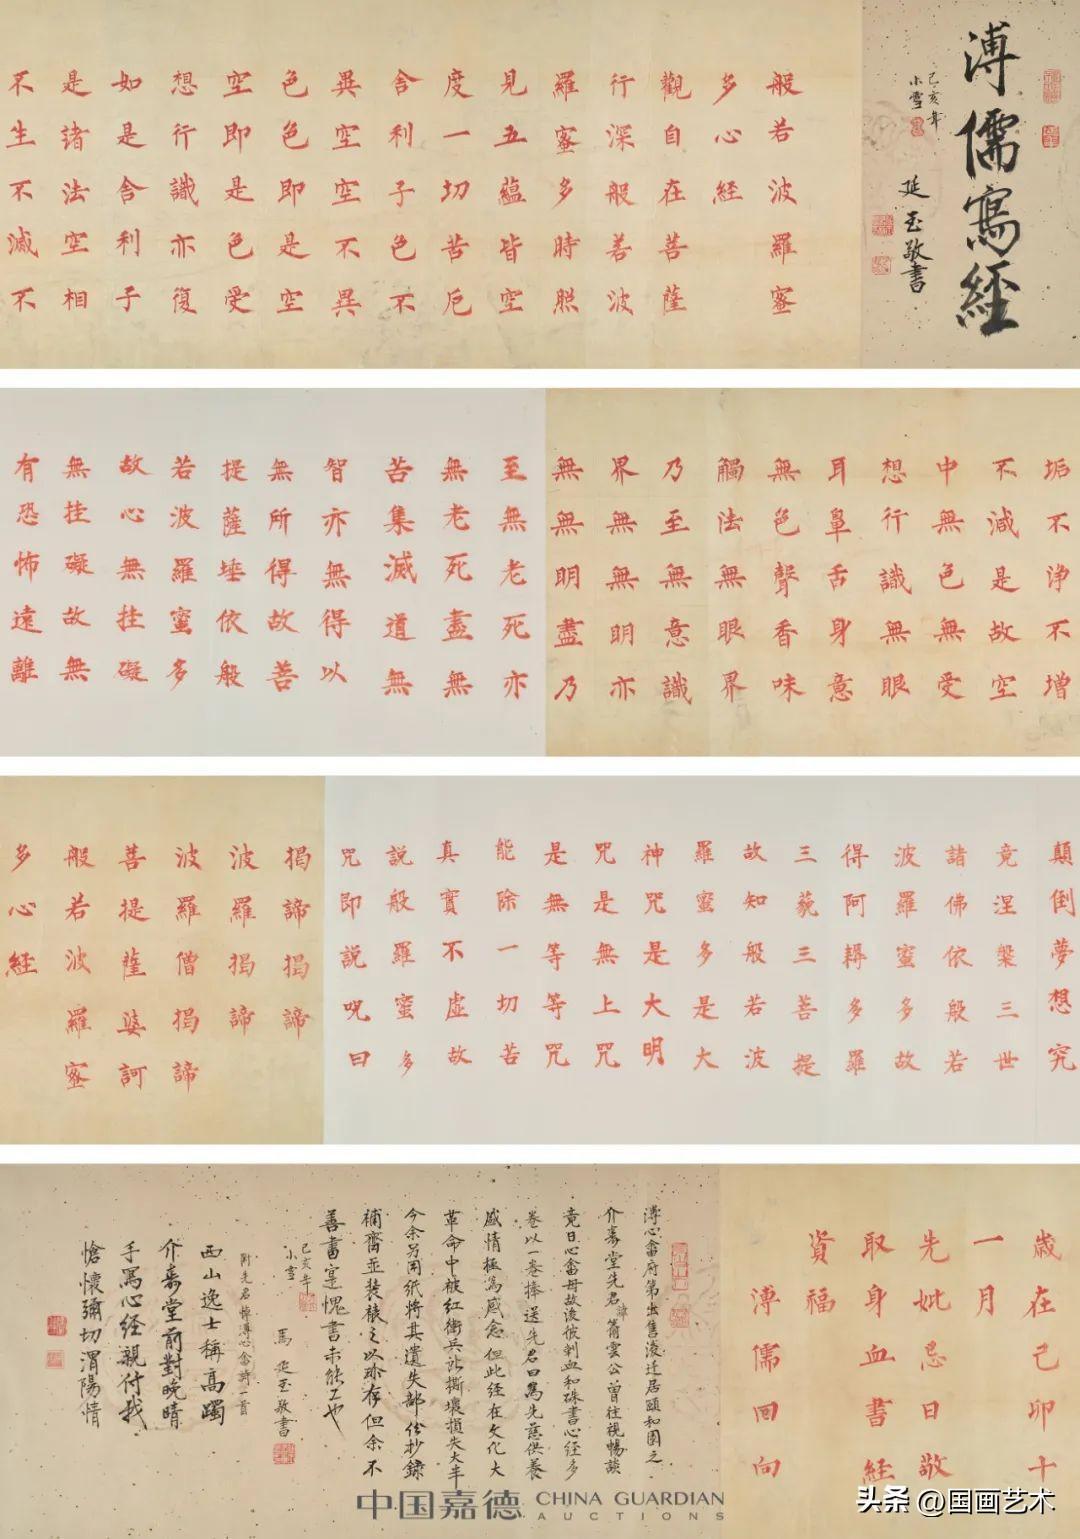 溥儒寫經
己亥年
小雪
延玉敬書
般若波羅蜜
多心經
觀自在菩薩
行深般若波
羅蜜多時照
見五蘊皆空
度一切苦厄
舍利子色不
異空空不異
色色即是空
空即是色受
想行識亦復
如是舍利子
是諸法空相
不生不滅不
垢不淨不增
不減是故空
中無色無受
想行識無眼
耳鼻舌身意
無色聲香味
觸法無眼界
乃至無意識
界無無明亦
無無明盡乃
至無老死亦
無老死盡無
苦集滅道無
智亦無得以
無所得故菩
提薩埵依般
若波羅蜜多
故心無挂礙
無挂礙故無
有恐怖遠離
顛倒夢想究
竟涅槃三世
諸佛依般若
波羅蜜多故
得阿耨多羅
三藐三菩提
故知般若波
羅蜜多是大
神咒是大明
咒是無上咒
是無等等咒
能除一切苦
真實不虛故
說般羅蜜多
咒即說呪曰
揭諦揭諦
波羅揭諦
波羅僧揭諦
菩提薩婆訶
般若波羅蜜
多心經
歲在己卯十
一月
先妣忌日敬
取身血書經
資福
溥儒回向
溥心畬府第出售後迁居頤和園之
介壽堂先君諱箭雲公曾往視暢談
竟日心畬母故後彼刺血和硃書心經多
卷以一卷捧送先君曰為先慈供養
感情極為感念但此經在文化大
革命中被紅衛兵訛撕壞損失大半
今余另用紙將其遺失部份抄錄
補齊並裝裱之以珍存但余不
善書寔愧書未能工也
己亥年
小雪
馬延玉敬書
附先君悼溥心畬詩一首
西山逸士稱高躅
介壽堂前對晚晴
手寫心經親付我
愴懷彌切渭陽情
中国嘉德 CHINA GUARDIAN
AUCTIONS
头条 @国画艺术